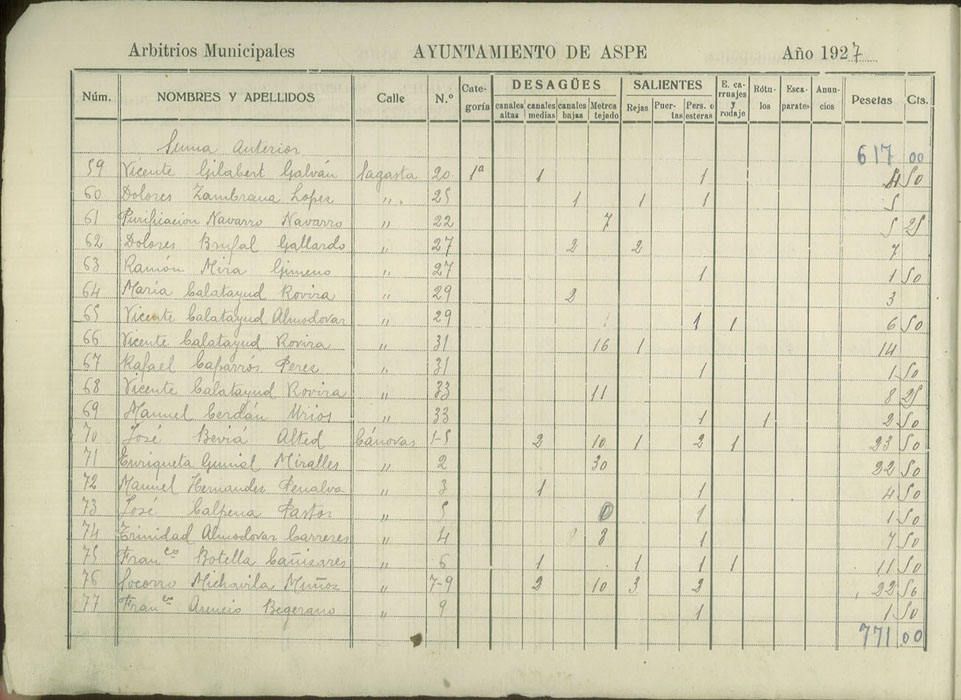 Arbitrios Municipales AYUNTAMIENTO DE ASPE Año 1927
Núm. NOMBRES Y APELLIDOS Calle N.º Categoría DESAGÜES canales altas canales medias canales bajas Metros tejado SALIENTES Rejas Puertas Pers. o esteras E. carruajes y rodaje Rótulos Escaparates Anuncios Pesetas Cts.
Suma Anterior 617 00
59 Vicente Gilabert Galván Sagasta 20 1ª 1 1 4 50
60 Dolores Zambrana Lopez " 25 1 1 1 5
61 Purificación Navarro Navarro " 22 7 5 25
62 Dolores Brufal Gallardo " 27 2 2 7
63 Ramón Mira Gimeno " 27 1 1 50
64 María Calatayud Rovira " 29 2 3
65 Vicente Calatayud Almodovar " 29 1 1 6 50
66 Vicente Calatayud Rovira " 31 16 1 14
67 Rafael Caparrós Perez " 31 1 1 50
68 Vicente Calatayud Rovira " 33 11 8 25
69 Manuel Cerdán Urios " 33 1 1 2 50
70 José Beviá Alted Cánovas 1-5 2 10 1 2 1 23 50
71 Enriqueta Miralles " 2 30 22 50
72 Manuel Hernandes Penalva " 3 1 1 4 50
73 José Calpena Pastor " 5 0 1 1 50
74 Trinidad Almodovar Carreres " 4 8 1 7 50
75 Franco Botella Cañizares " 6 1 1 1 1 11 50
76 Socorro Michavila Muñoz " 7-9 2 10 3 2 22 50
77 Franco Asencio " 9 1 1 50
771 00